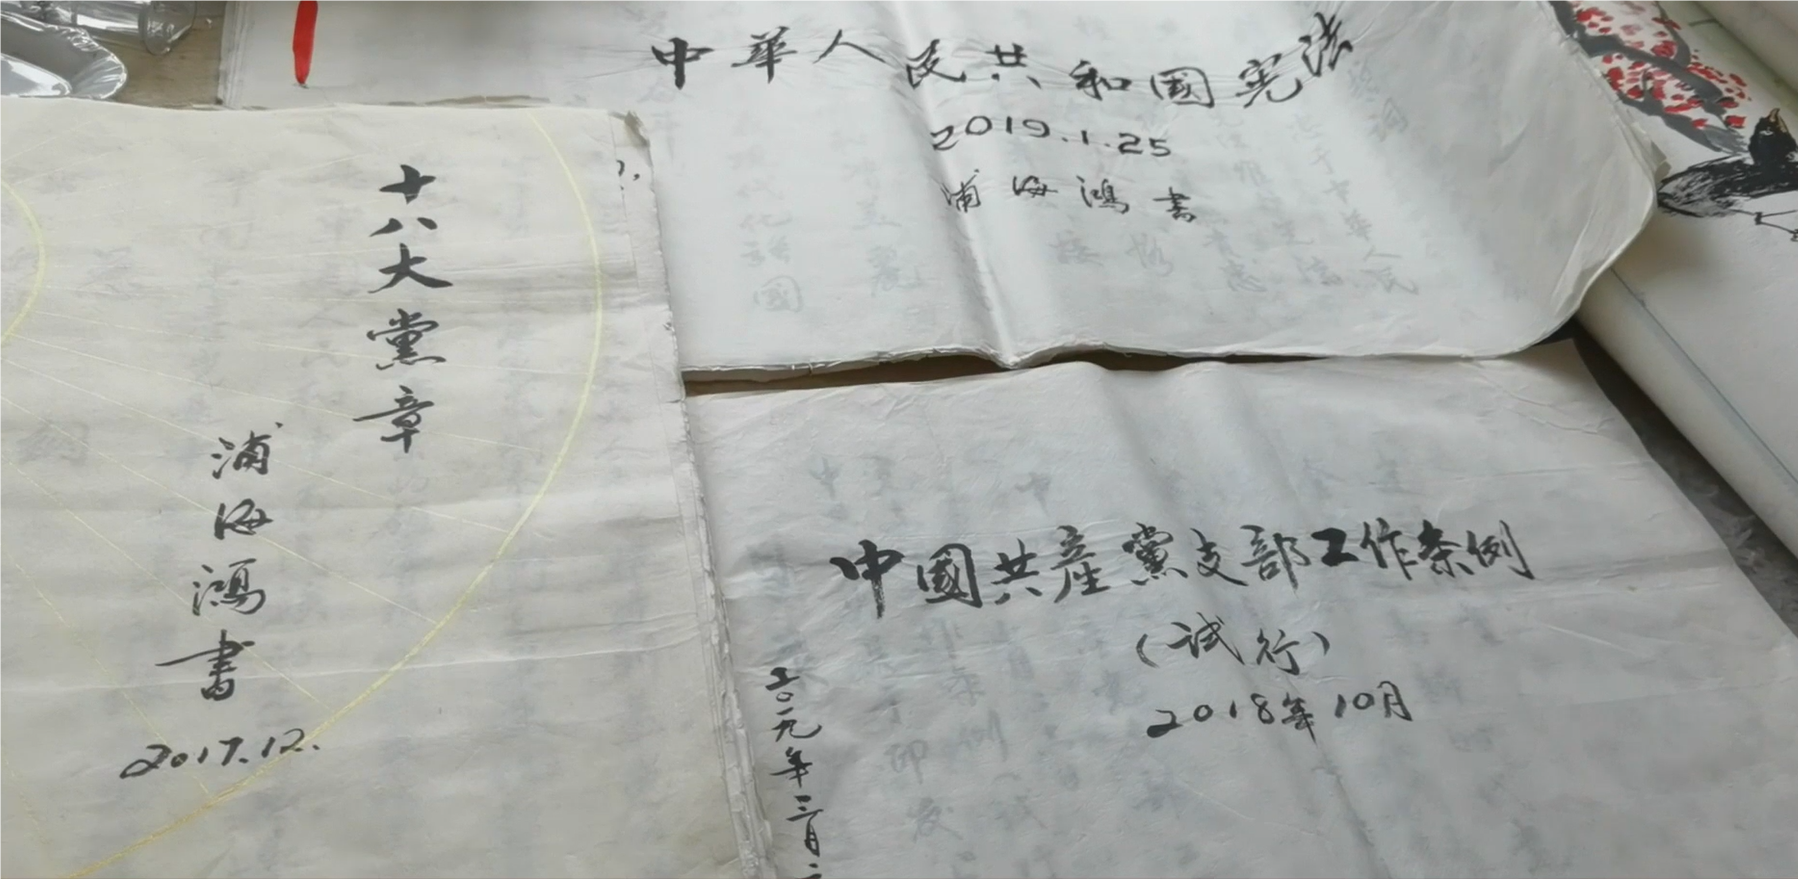 中華人民共和國宪法
2019.1.25
浦海鴻書
十八大黨章
浦海鴻書
2017.12.
中國共產黨支部工作条例
(试行)
2018年10月
二〇一九年三月二